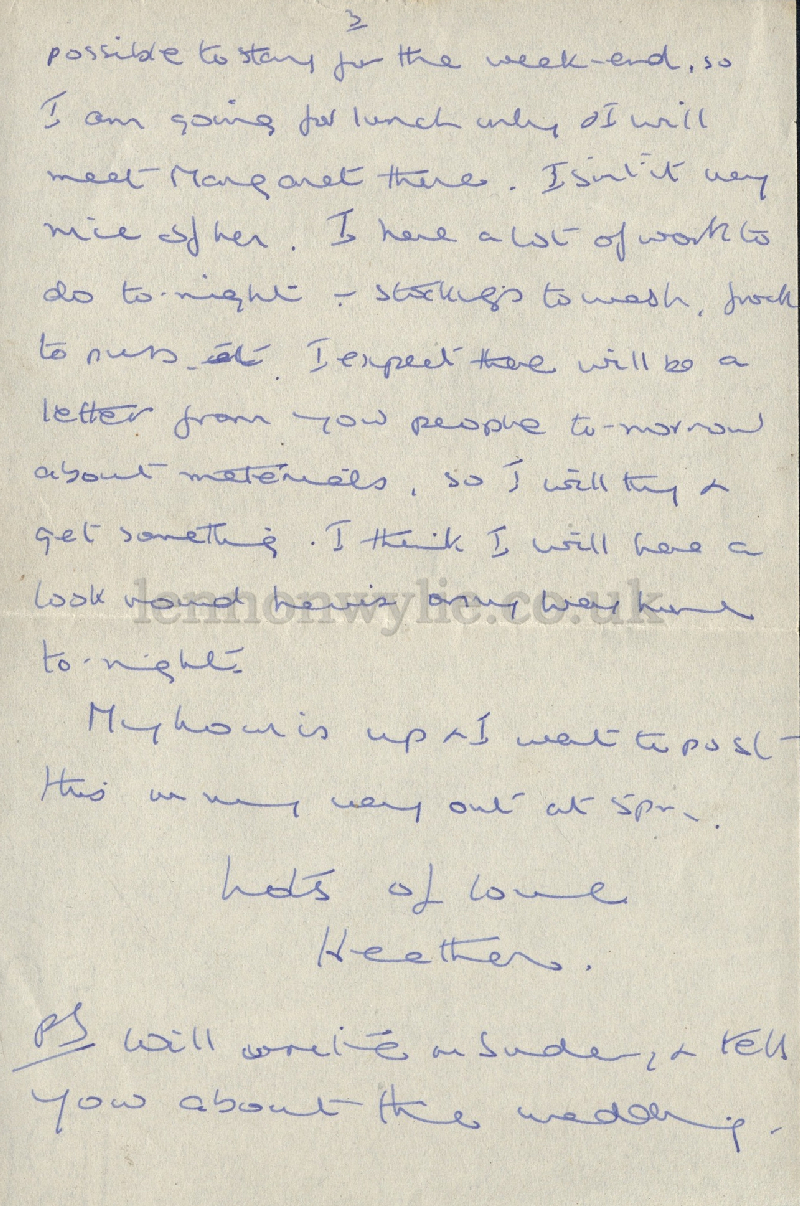 3
possible to stay for the week-end, so
I am going for lunch only & I will
meet Margaret there. Isn't it very
nice of her. I have a lot of work to
do to-night - stockings to wash, frock
to press etc. I expect there will be a
letter from you people to-morrow
about materials, so I will try &
get something. I think I will have a
look round on my way home
to-night.
My hour is up & I want to post
this on my way out at 5pm.
Lots of love
Heather.
PS Will write on Sunday, & tell
you about the wedding.
lennonwylie.co.uk